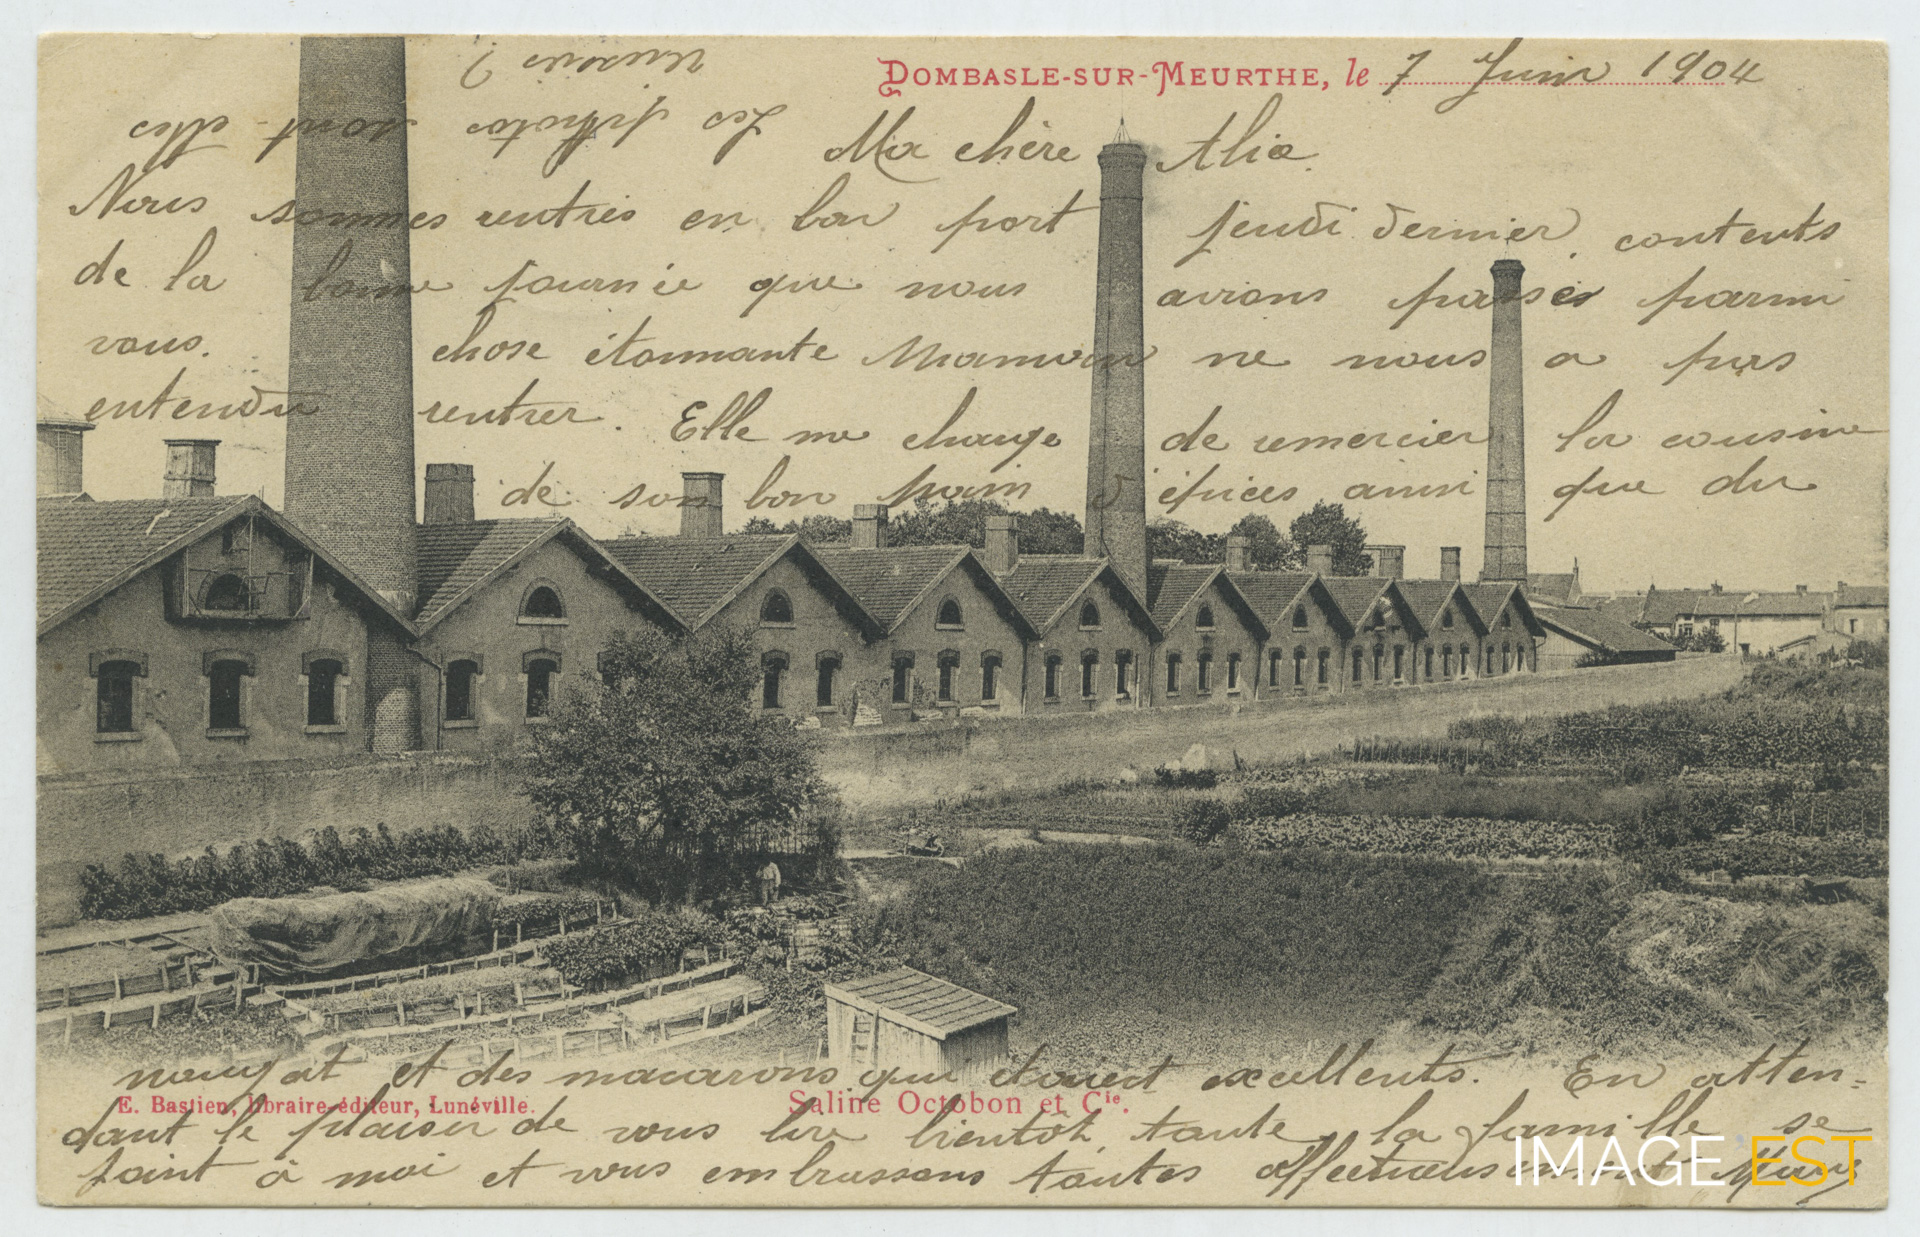 DOMBASLE-SUR-MEURTHE, le 7 Juin 1904
Ma chère Alice
Nous sommes rentrés en bon port jeudi dernier, contents
de la bonne journée que nous avions passés parmi
vous. chose étonnante Maman ne nous a pas
entendu rentrer. Elle me charge de remercier la cousine
de son bon pain d'épices ainsi que du
nougat et des macarons qui étaient excellents. En atten=
dant le plaisir de vous lire bientôt, toute la famille se
joint à moi et vous embrassons toutes affectueusement
Les petites sont-elles
E. Bastien, libraire-éditeur, Lunéville.
Saline Octobon et Cie.
IMAGE EST